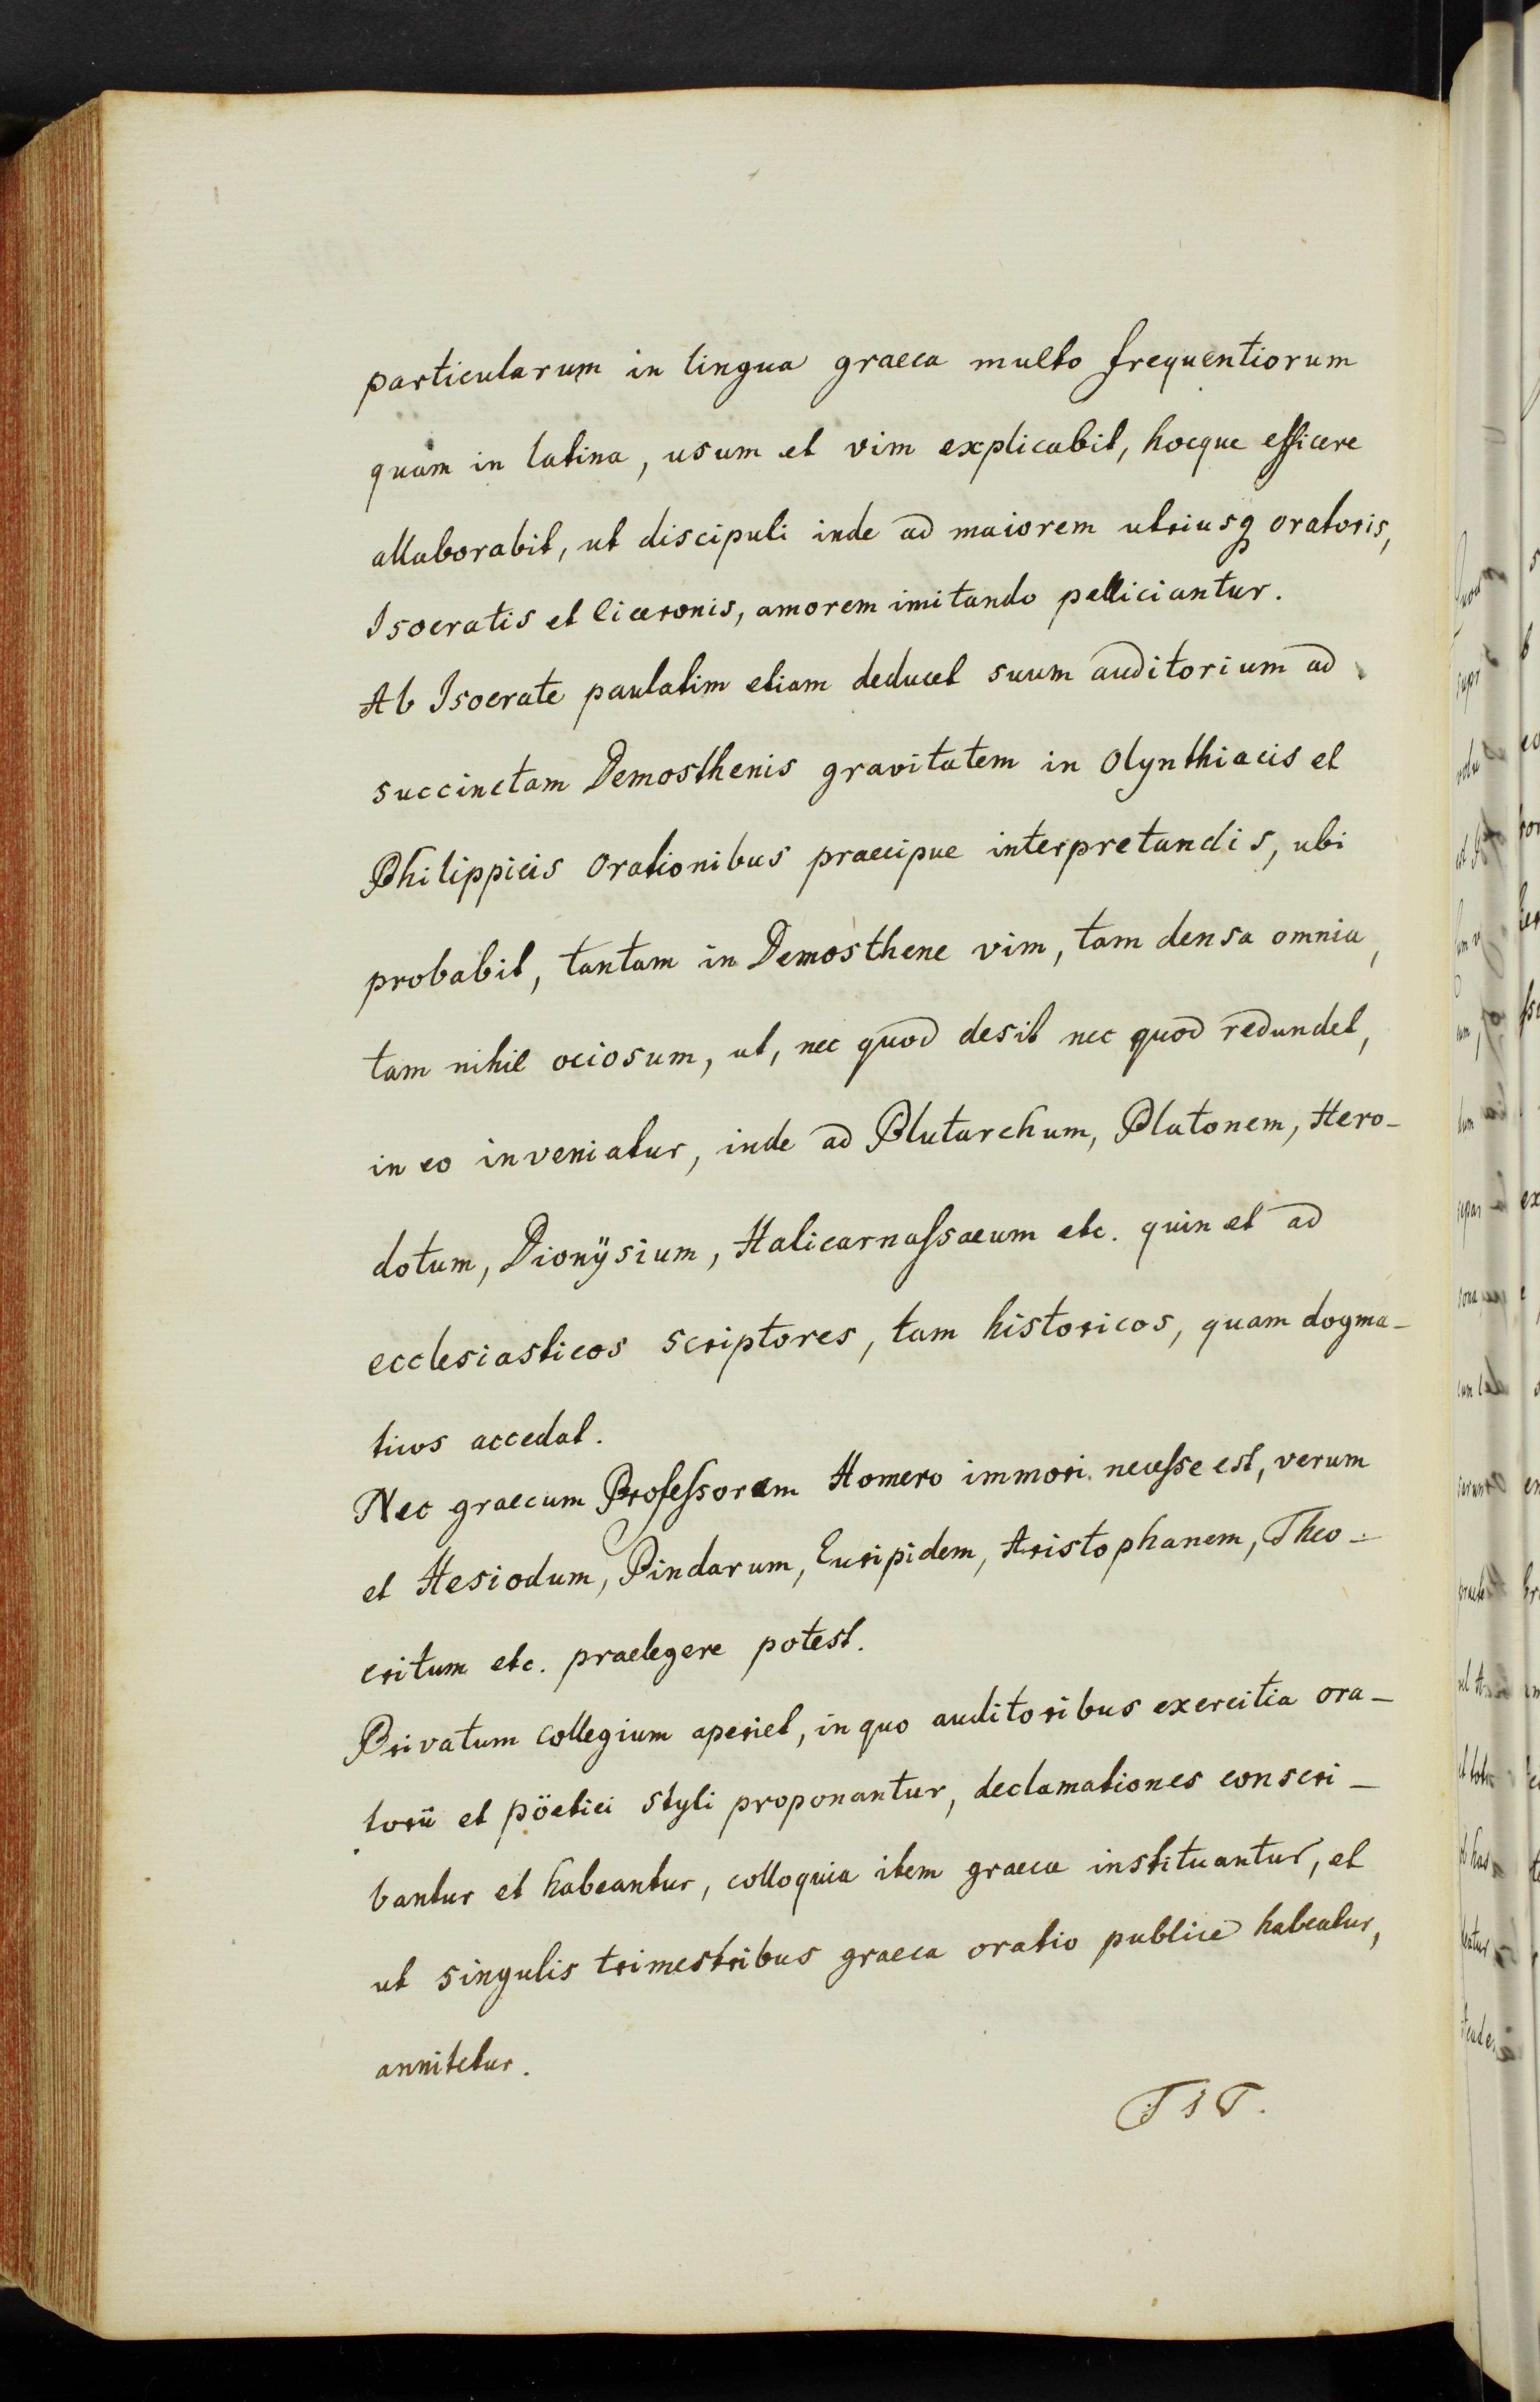 particularum in lingua graeca multo frequentiorum
quam in latina, usum et vim explicabit, hocque efficere
allaborabit, ut discipuli inde ad maiorem utriusq oratoris,
Isocratis et Ciceronis, amorem imitando pelliciantur.
Ab Isocrate paulatim etiam deducet suum auditorium ad
succinctam Demosthenis gravitatem in Olynthiacis et
Philippicis Orationibus praecipue interpretandis, ubi
probabit, tantam in Demosthene vim, tam densa omnia,
tam nihil ociosum, ut, nec quod desit nec quod redundet,
in eo inveniatur, inde ad Plutarchum, Platonem, Hero-
dotum, Dionÿsium, Halicarnaſsaeum etc. quin et ad
ecclesiasticos scriptores, tam historicos, quam dogma-
ticos accedat.
Nec graecum Profeſsorem Homero immori neceſse est, verum
et Hesiodum, Pindarum, Euripidem, Aristophanem, Theo-
critum etc. praelegere potest.
Privatum collegium aperiet, in quo auditoribus exercitia ora-
torii et pöetici styli proponantur, declamationes conscri-
bantur et habeantur, colloquia item graeca instituantur, et
ut singulis trimestribus graeca oratio publice habeatur,
annitetur.